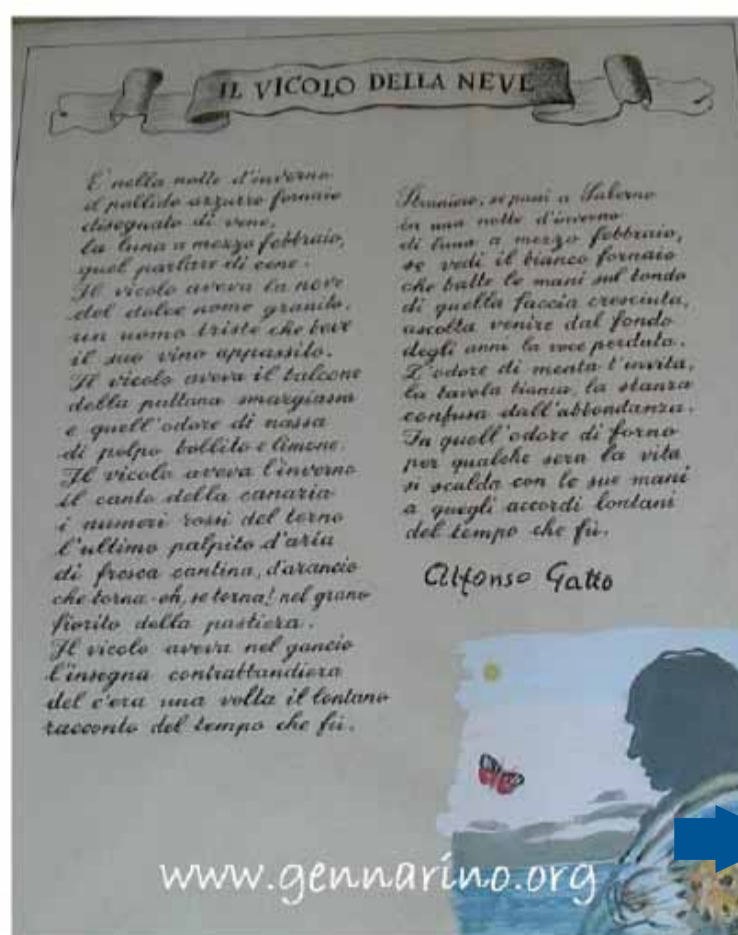 IL VICOLO DELLA NEVE
E' nella notte d'inverno
il pallido azzurro fornaio
disegnato di vene,
la luna a mezzo febbraio,
quel parlare di cene.
Il vicolo aveva la neve
del dolce nome grande,
un uomo triste che beve
il suo vino appassito.
Il vicolo aveva il balcone
della puttana smargiassa
e quell'odore di nassa
di polpo bollito e limone.
Il vicolo aveva l'inverno
il canto della canaria
i numeri rossi del terno
l'ultimo palpito d'aria
di fresca cantina, d'arancio
che torna-oh, se torna! nel grano
fiorito della pastiera.
Il vicolo aveva nel gancio
l'insegna contrabbandiera
del c'era una volta il lontano
racconto del tempo che fù.
Straniero, se passi a Salerno
in una notte d'inverno
di luna a mezzo febbraio,
se vedi il bianco fornaio
che batte le mani sul tondo
di quella faccia cresciuta,
ascolta venire dal fondo
degli anni la voce perduta.
L'odore di menta t'invita,
la tavola bianca, la stanza
confusa dall'abbondanza.
In quell'odore di forno
per qualche sera la vita
si scalda con le sue mani
a quegli accordi lontani
del tempo che fù.
Alfonso Gatto
www.gennarino.org